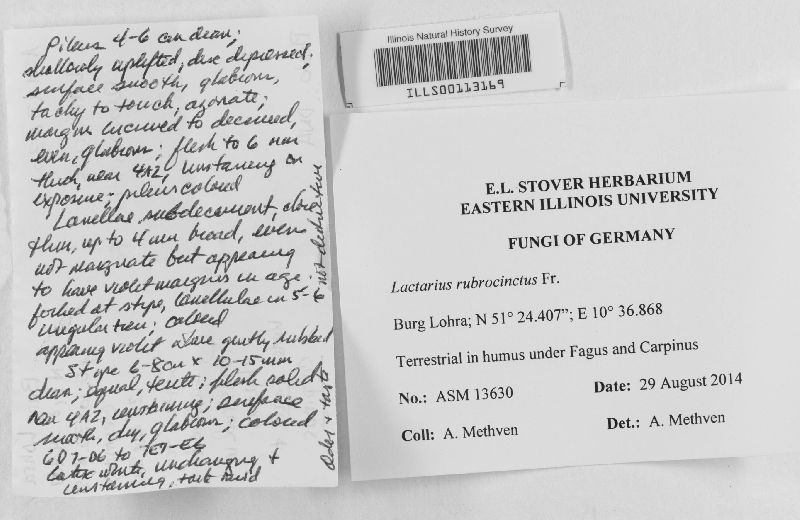 Pileus 4-6 cm diam;
shallowly uplifted, disc depressed;
surface smooth, glabrous,
tacky to touch, azonate;
margin incurved to decurved,
even, glabrous; flesh to 6 mm
thick, near 4A2, unstaining on
exposure; pileus colored
Lamellae subdecurrent, close
thin, up to 4 mm broad, even
not marginate but appearing
to have violet margins in age;
forked at stipe, lamellulae in 5-6
irregular tiers; colored
appearing violet where gently rubbed
Stipe 6-8cm x 10-15mm
diam; equal, terete; flesh solid
near 4A2, unstaining; surface
smooth, dry, glabrous; colored
6D7-D6 to 7E7-E6
latex white, unchanging +
unstaining, taste acrid
Odor + taste not distinctive
Illinois Natural History Survey
ILLS00113169
E.L. STOVER HERBARIUM
EASTERN ILLINOIS UNIVERSITY
FUNGI OF GERMANY
Lactarius rubrocinctus Fr.
Burg Lohra; N 51° 24.407”; E 10° 36.868
Terrestrial in humus under Fagus and Carpinus
No.: ASM 13630 Date: 29 August 2014
Coll: A. Methven Det.: A. Methven